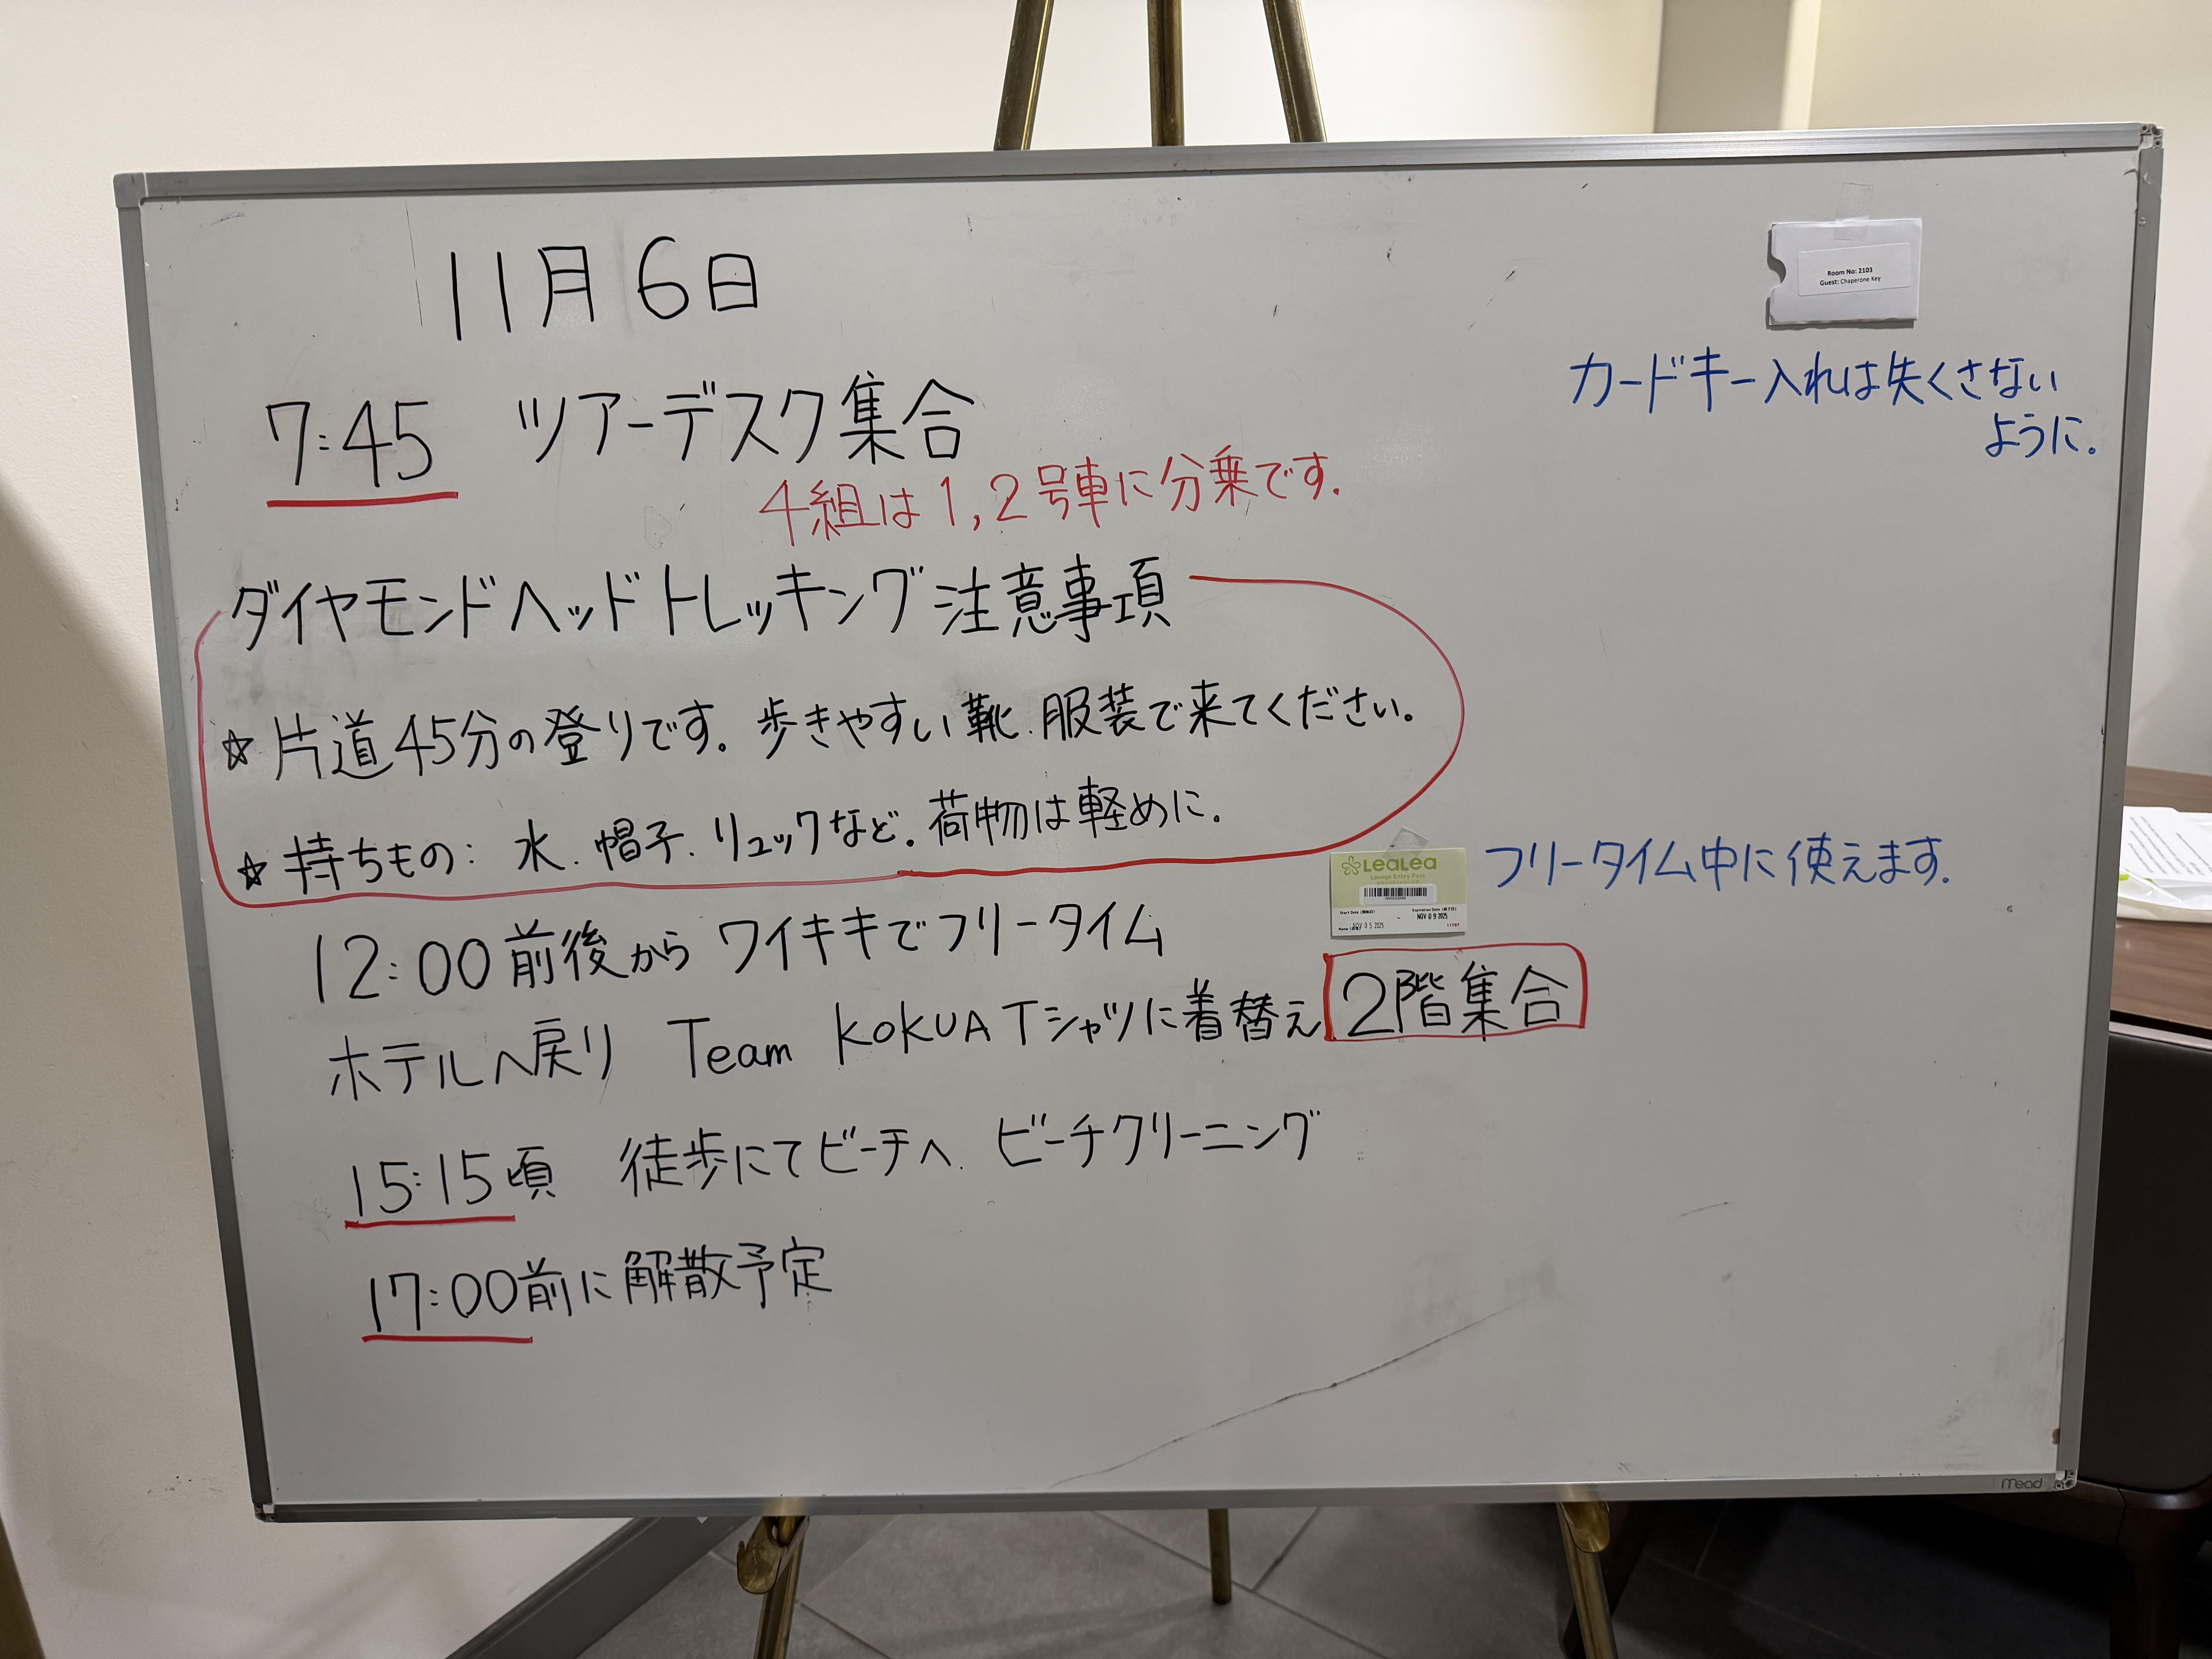 11月6日
7:45 ツアーデスク集合
4組は1,2号車に分乗です.
ダイヤモンドヘッドトレッキング注意事項
☆片道45分の登りです。歩きやすい靴.服装で来てください。
☆持ちもの: 水.帽子.リュックなど。荷物は軽めに.
12:00前後から ワイキキでフリータイム
ホテルへ戻り Team KOKUA Tシャツに着替え 2階集合
15:15頃 徒歩にてビーチへ. ビーチクリーニング
17:00前に解散予定
Room No: 2103
Guest: Chaperone Key
カードキー入れは失くさない
ように.
LeaLea
Lounge Entry Pass
Start Date
Expiration Date
NOV 05 2025 - NOV 09 2025
Name
11787
フリータイム中に使えます.
Mead